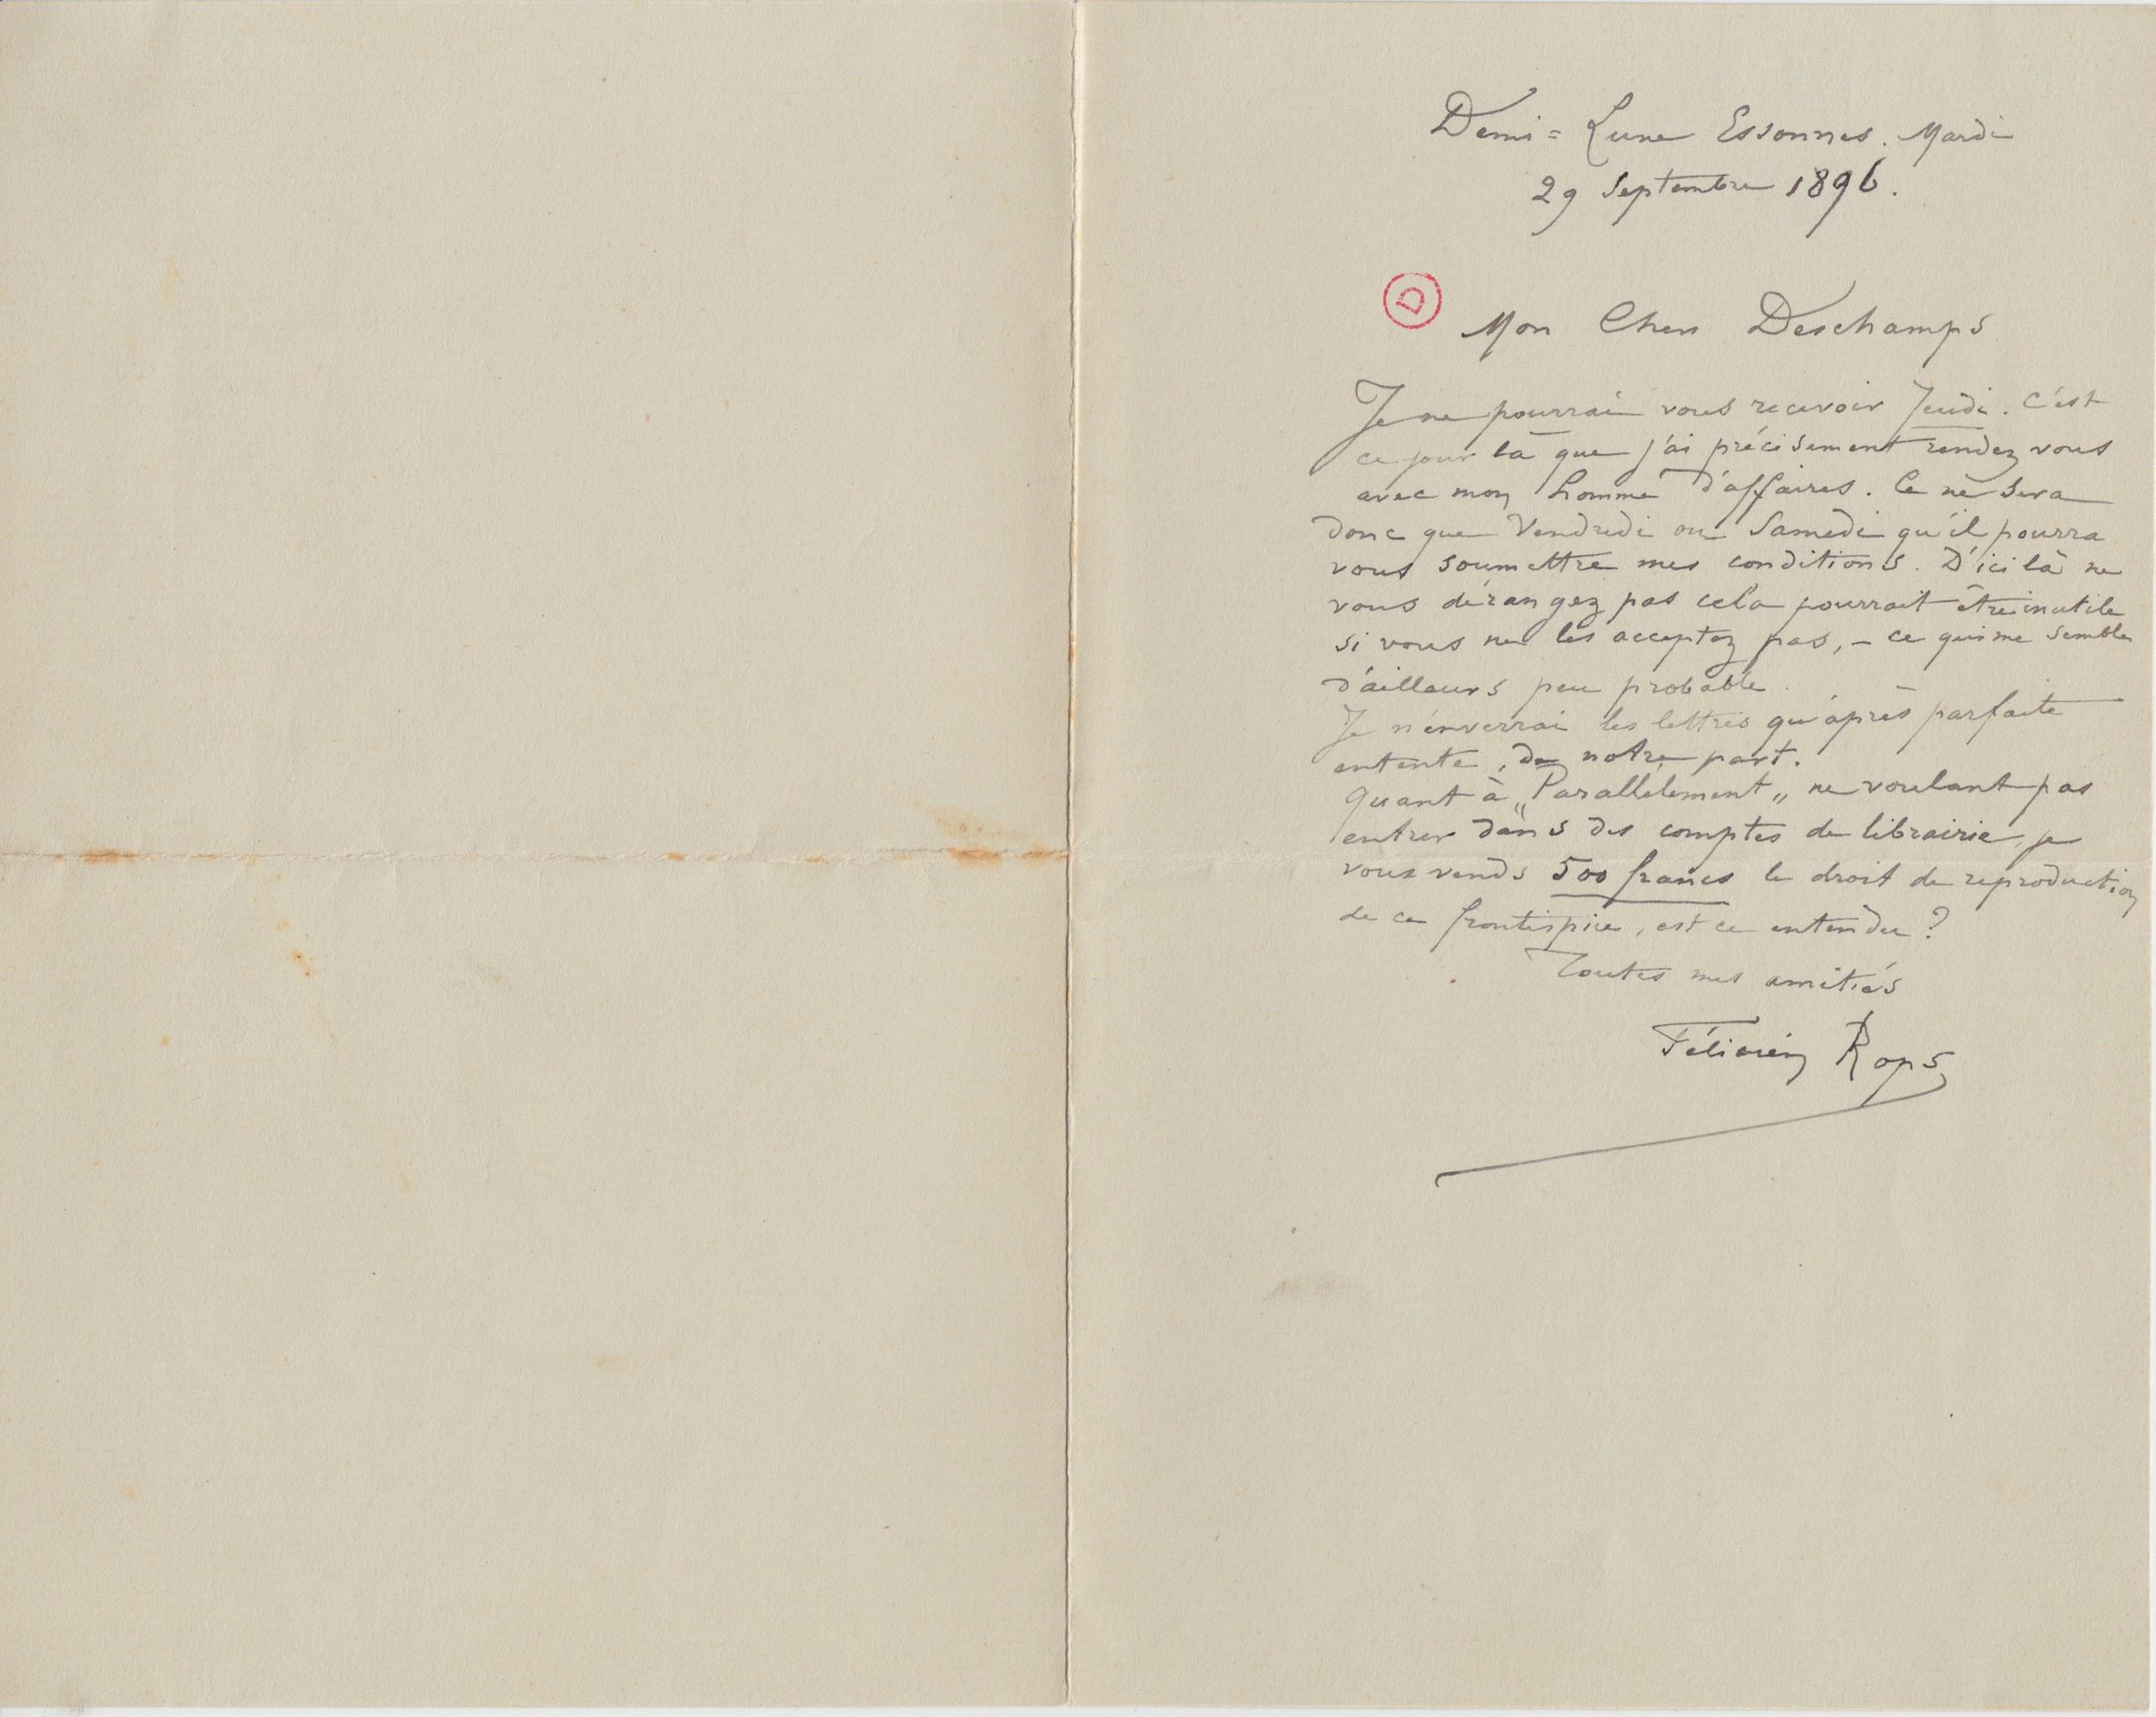 Demi=Lune Essonnes. Mardi
29 Septembre 1896.
D
Mon Cher Deschamps
Je ne pourrai vous recevoir Jeudi. C'est
ce jour là que j'ai précisement rendez vous
avec mon homme d'affaires. Ce ne sera
donc que Vendredi ou Samedi qu'il pourra
vous soumettre mes conditions. D'ici là ne
vous dérangez pas cela pourrait être inutile
si vous ne les acceptez pas, – ce qui me semble
d'ailleurs peu probable.
Je n'enverrai les lettres qu'après parfaite
entente, de notre part.
Quant à „Parallèlement„ ne voulant pas
entrer dans des comptes de librairie, je
vous vends 500 francs le droit de reproduction
de ce frontispice, est ce entendu?
Toutes mes amitiés
Félicien Rops